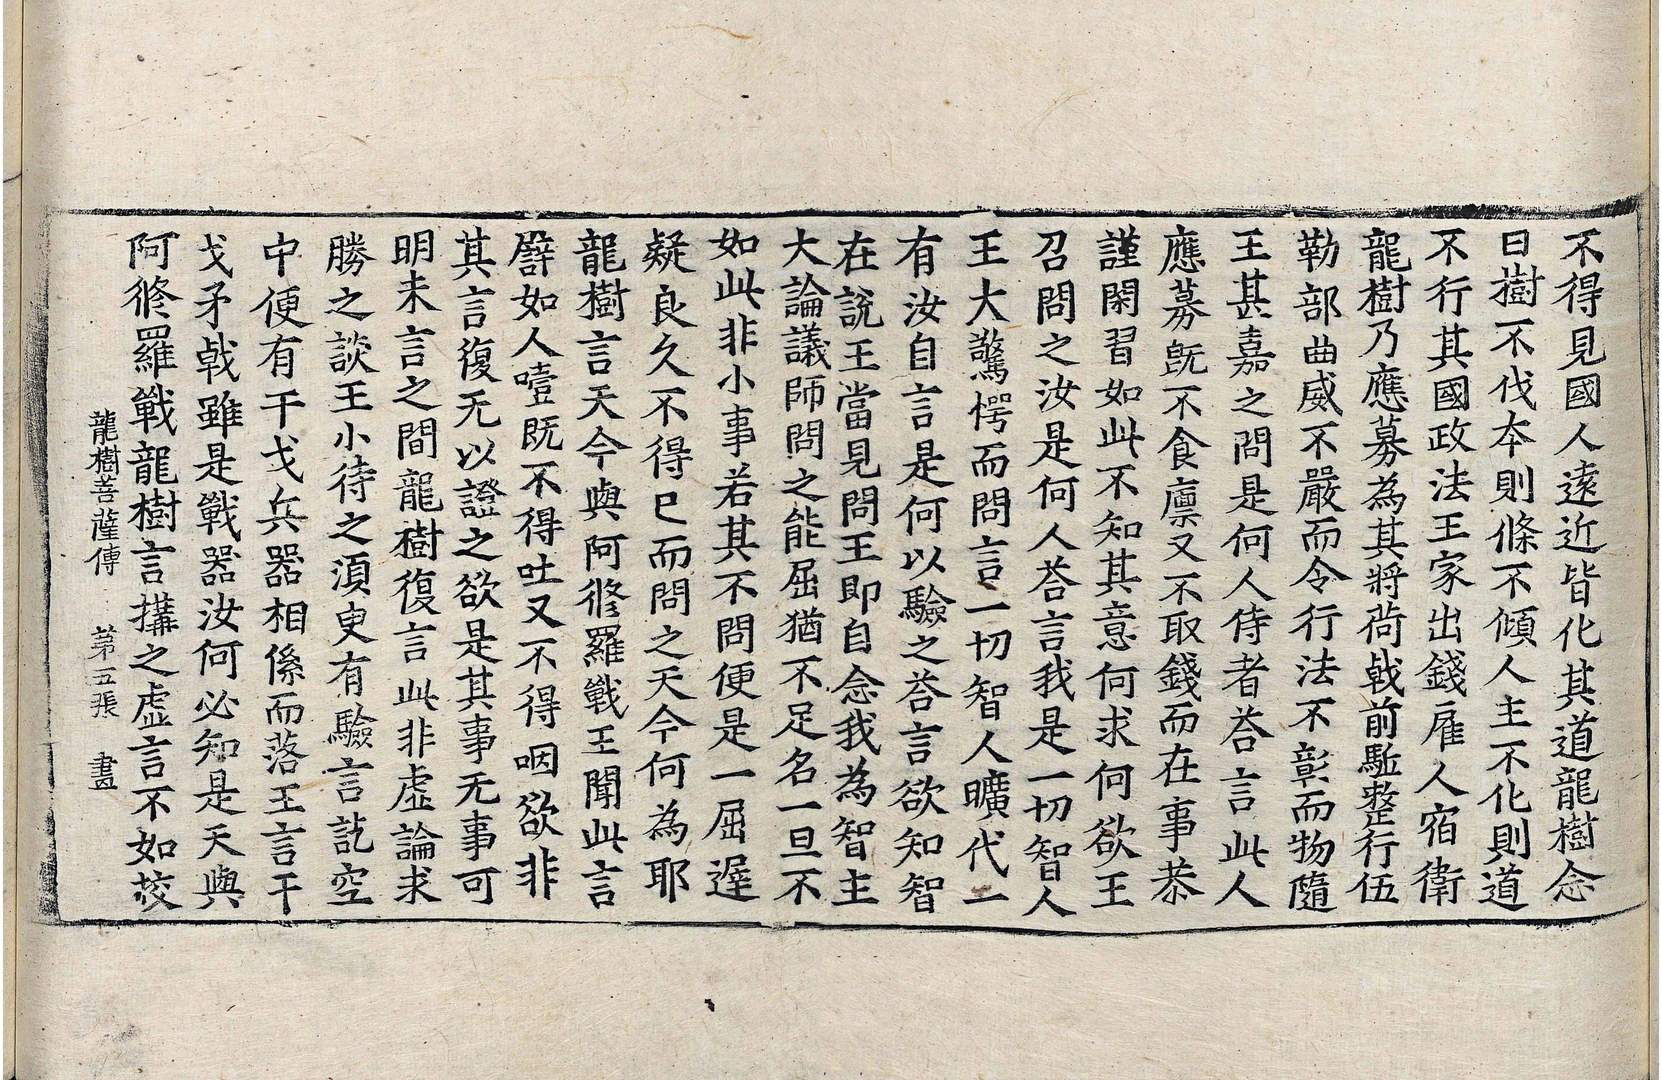 不得見國人遠近皆化其道龍樹念
曰樹不伐夲則條不傾人主不化則道
不行其國政法王家出錢雇人宿衛
龍樹乃應募為其將荷戟前駈整行伍
勒部曲威不嚴而令行法不彰而物隨
王甚嘉之問是何人侍者荅言此人
應募旣不食廪又不取錢而在事恭
謹閑習如此不知其意何求何欲王
召問之汝是何人荅言我是一切智人
王大驚愕而問言一切智人曠代一
有汝自言是何以驗之荅言欲知智
在說王當見問王即自念我為智主
大論議師問之能屈猶不足名一旦不
如此非小事若其不問便是一屈遲
疑良久不得已而問之天今何為耶
龍樹言天今與阿修羅戰王聞此言
譬如人噎既不得吐又不得咽欲非
其言復无以證之欲是其事无事可
明未言之間龍樹復言此非虛論求
勝之談王小待之須臾有驗言訖空
中便有干戈兵器相係而落王言干
戈矛戟雖是戰器汝何必知是天與
阿修羅戰龍樹言搆之虛言不如挍
龍樹菩薩傳 第五張 畫